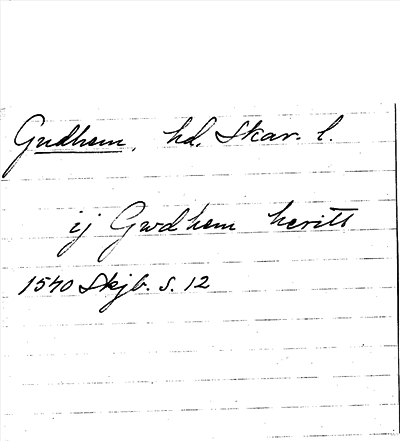 Gudhem, hd, Skar. l.
ij Gwdhem heritt
1540 Skjb. s. 12